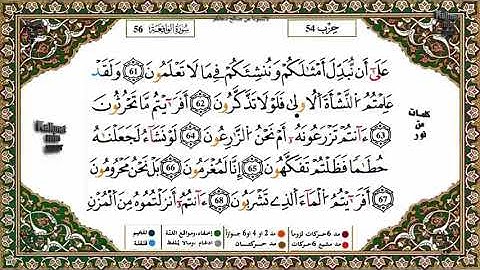 56 سُورَةُ الوَاقِعَة
حِزْب 54
عَلَىٰٓ أَن نُّبَدِّلَ أَمْثَٰلَكُمْ وَنُنشِئَكُمْ فِے مَا لَا تَعْلَمُونَ 61 وَلَقَدْ
عَلِمْتُمُ النَّشْأَةَ اَلُاولَىٰ فَلَوْلَا تَذَّكَّرُونَ 62 أَفَرَٰٓيْتُم مَّا تَحْرُثُونَ
63 ءَآنتُمْ تَزْرَعُونَهُۥٓ أَمْ نَحْنُ الزَّٰرِعُونَ 64 لَوْ نَشَآءُ لَجَعَلْنَٰهُ
حُطَٰماً فَظَلْتُمْ تَفَكَّهُونَ 65 إِنَّا لَمُغْرَمُونَ 66 بَلْ نَحْنُ مَحْرُومُونَ
67 أَفَرَٰٓيْتُمُ الْمَآءَ اَلذِے تَشْرَبُونَ 68 ءَآنتُمُۥٓ أَنزَلْتُمُوهُ مِنَ اَلْمُزْنِ
كلمات
من
نور
مد 6 حركات لزوما
مد 2 أو 4 أو 6 جوازا
إخفاء، ومواقع الغنة
تفخيم
مد مشبع 6 حركات
مد حركتان
إدغام، وما لا يلفظ
قلقلة